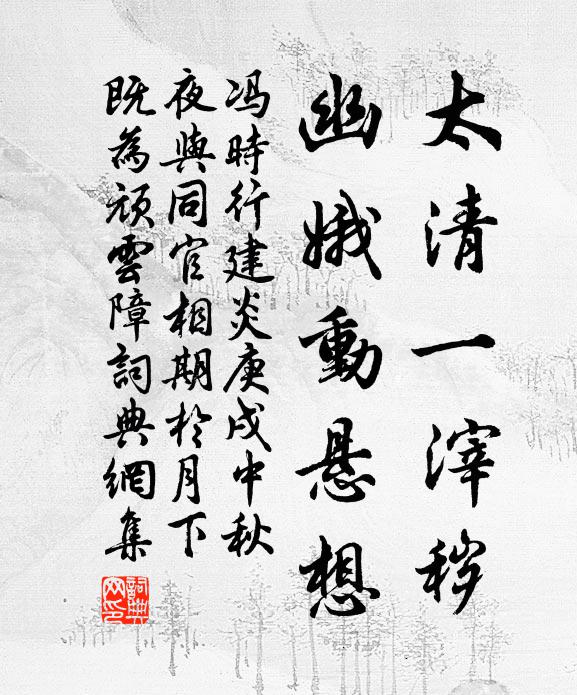 太清一滓秽
幽娥動悬想
冯時行建炎庚戌中秋
夜與同官相期於月下
既為頑雲障詞典網集
詞典網印